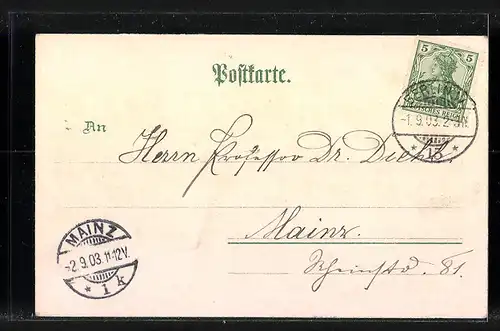 5 5
DEUTSCHES REICH
Postkarte.
BERLIN
-1.9.03. 2-3N.
* 13 *
An
Herrn Professor Dr.
Mainz.
81.
MAINZ
-2.9.03. 11-12V.
* 1 k